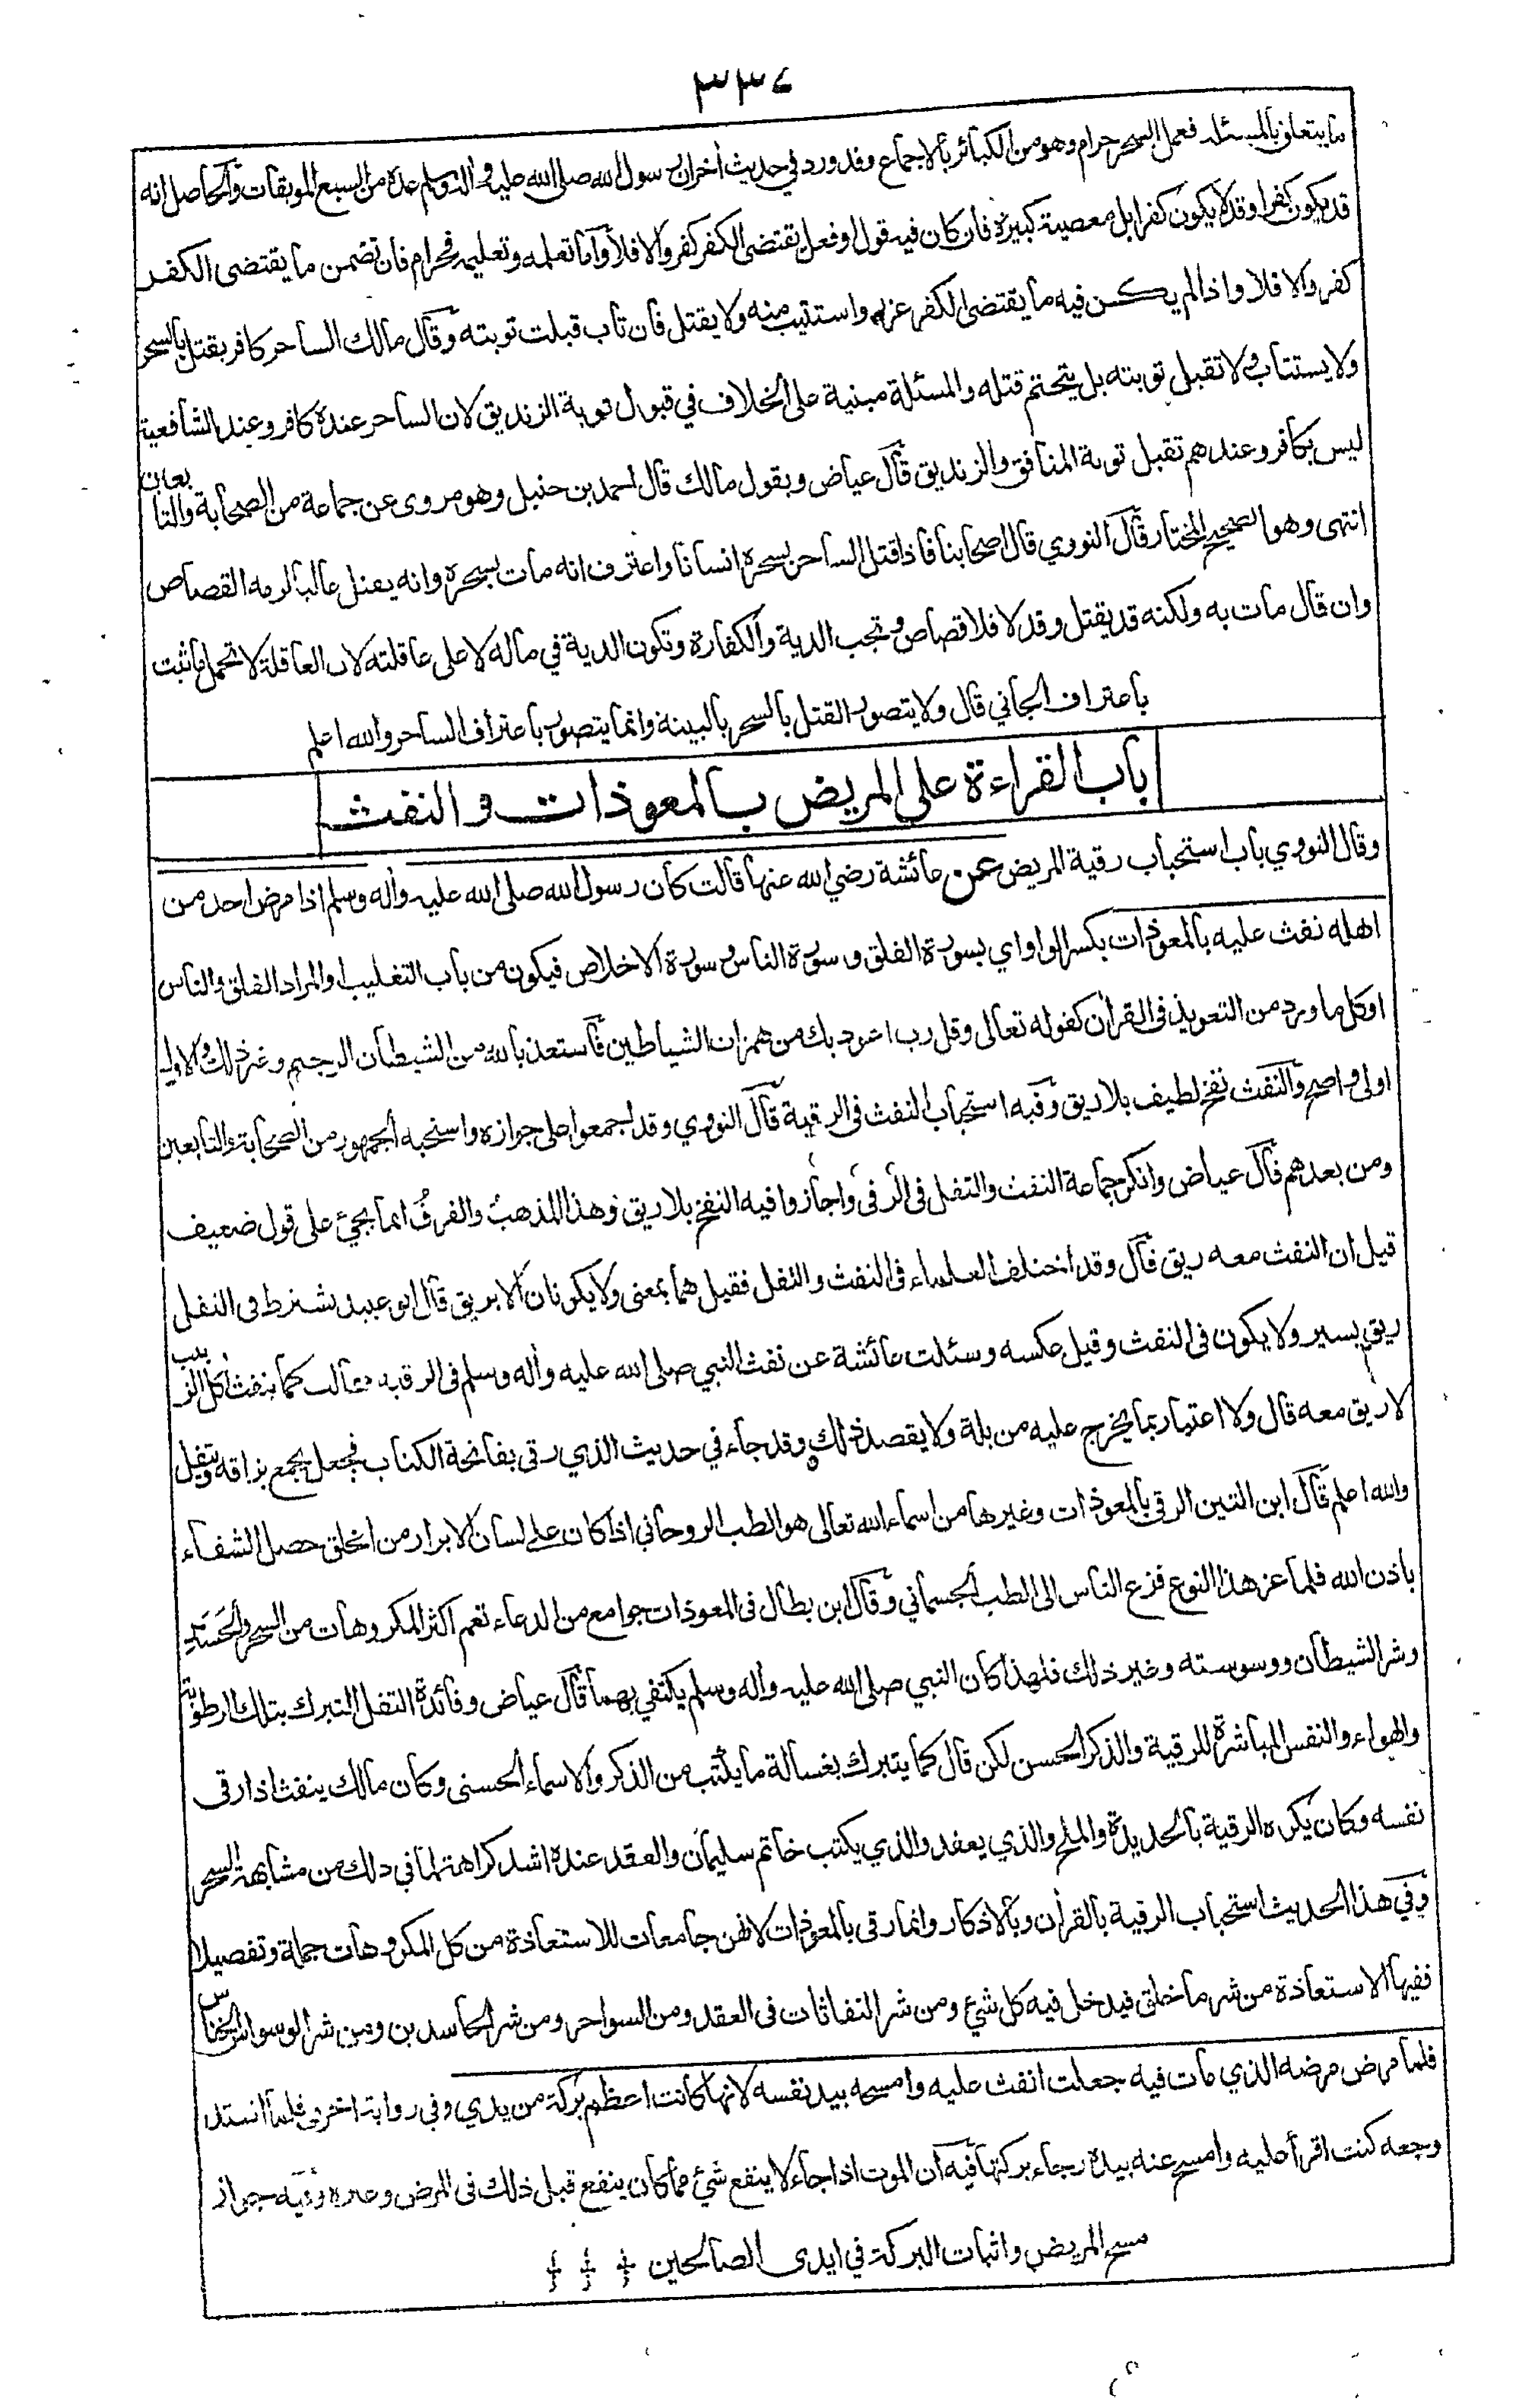 ٣٣٤
ما يتعلق بالمسئلة فعمل السحر حرام وهو من الكبائر بالاجماع وقد ورد في حديث اخران رسول الله صلى الله عليه واله وسلم عده من السبع الموبقات والحاصل انه
قد يكون كفرا وقد لا يكون كفرا بل معصية كبيرة فان كان فيه قول او فعل يقتضى الكفر كفر والا فلا واما تعلمه وتعليمه فحرام فان تضمن ما يقتضى الكفر
كفر والا فلا واذا لم يكن فيه ما يقتضى الكفر عزر واستتيب منه ولا يقتل فان تاب قبلت توبته وقال مالك الساحر كافر يقتل بالسحر
ولا يستتاب ولا تقبل توبته بل يتحتم قتله والمسئلة مبنية على الخلاف في قبول توبة الزنديق لان الساحر عنده كافر وعند الشافعية
ليس بكافر وعندهم تقبل توبة المنافق والزنديق قال عياض وبقول مالك قال احمد بن حنبل وهو مروى عن جماعة من الصحابة والتابعان
انتهى وهو الصحيح المختار قال النووي قال اصحابنا فاذا قتل الساحر بسحره انسانا واعترف انه مات بسحره وانه يقتل غالبا لزمه القصاص
وان قال مات به ولكنه قد يقتل وقد لا فلا قصاص وتجب الدية والكفارة وتكون الدية في ماله لا على عاقلته لان العاقلة لا تحمل ما ثبت
باعتراف الجاني قال ولا يتصور القتل بالسحر بالبينة وانما يتصور باعتراف الساحر والله اعلم
باب القراءة على المريض بالمعوذات والنفث
وقال النووي باب استحباب رقية المريض عن عائشة رضي الله عنها قالت كان رسول الله صلى الله عليه واله وسلم اذا مرض احد من
اهله نفث عليه بالمعوذات بكسر الواو اي بسورة الفلق وسورة الناس وسورة الاخلاص فيكون من باب التغليب او المراد الفلق والناس
او كل ما ورد من التعويذ في القران كقوله تعالى وقل رب اعوذ بك من همزات الشياطين فاستعذ بالله من الشيطان الرجيم وغير ذلك والاول
اولى واصح والنفث نفخ لطيف بلا ريق وفيه استحباب النفث في الرقية قال النووي وقد اجمعوا على جوازه واستحبه الجمهور من الصحابة والتابعين
ومن بعدهم قال عياض وانكر جماعة النفث والتفل في الرقى واجازوا فيه النفخ بلا ريق وهذا المذهب والفرق انما يجئ على قول ضعيف
قيل ان النفث معه ريق قال وقد اختلف العلماء في النفث والتفل فقيل هما بمعنى ولا يكونان الا بريق قال ابو عبيد يشترط في التفل
ريق يسير ولا يكون في النفث وقيل عكسه وسئلت عائشة عن نفث النبي صلى الله عليه واله وسلم في الرقية فقالت كما ينفث اكل الزبيب
لا ريق معه قال ولا اعتبار بما يخرج عليه من بلة ولا يقصد ذلك وقد جاء في حديث الذي رقى بفاتحة الكتاب فجعل يجمع بزاقه ويتفل
والله اعلم قال ابن التين الرقى بالمعوذات وغيرها من اسماء الله تعالى هو الطب الروحاني اذا كان على لسان الابرار من الخلق حصل الشفاء
باذن الله فلما عز هذا النوع فزع الناس الى الطب الجسماني وقال ابن بطال في المعوذات جوامع من الدعاء تعم اكثر المكروهات من السحر والحسد
وشر الشيطان ووسوسته وغير ذلك فلهذا كان النبي صلى الله عليه واله وسلم يكتفي بهما قال عياض وفائدة التفل التبرك بتلك الرطوبة
والهواء والنفس المباشرة للرقية والذكر الحسن لكن قال كما يتبرك بغسالة ما يكتب من الذكر والاسماء الحسنى وكان مالك ينفث اذا رقى
نفسه وكان يكره الرقية بالحديدة والملح والذي يعقد والذي يكتب خاتم سليمان والعقد عنده اشد كراهة لما في ذلك من مشابهة السحر
وفي هذا الحديث استحباب الرقية بالقران وبالاذكار وانما رقى بالمعوذات لانهن جامعات للاستعاذة من كل المكروهات جملة وتفصيلا
ففيها الاستعاذة من شر ما خلق فيدخل فيه كل شئ ومن شر النفاثات في العقد ومن السواحر ومن شر الحاسدين ومن شر الوسواس الخناس
فلما مرض مرضه الذي مات فيه جعلت انفث عليه وامسحه بيد نفسه لانها كانت اعظم بركة من يدي وفي رواية اخرى فلما اشتد
وجعه كنت اقرأ عليه وامسح عنه بيده رجاء بركتها فيه ان الموت اذا جاء لا ينفع شئ مما كان ينفع قبل ذلك في المرض وغيره وفيه جواز
مسح المريض واثبات البركة في ايدى الصالحين